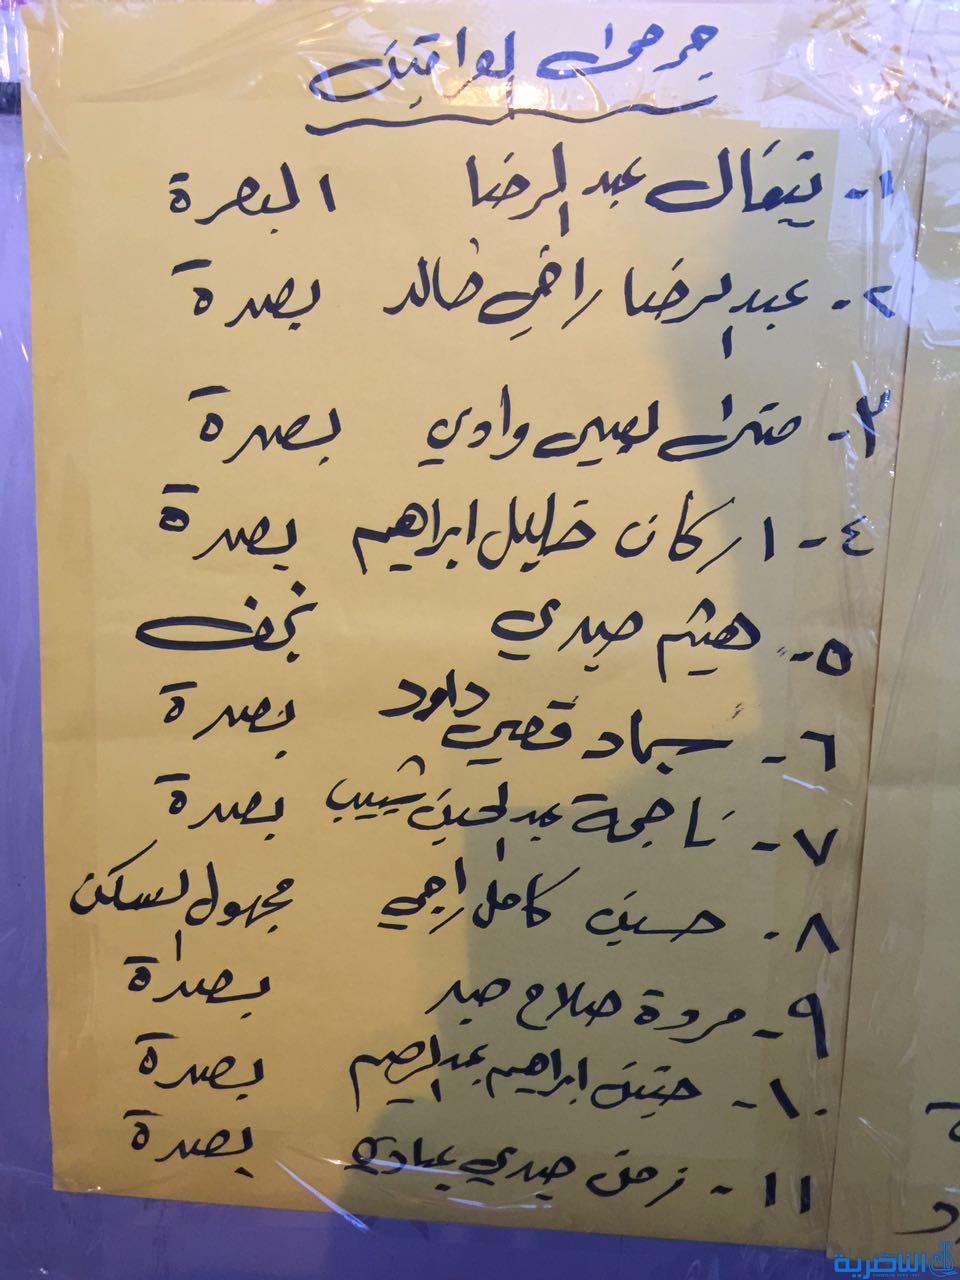 جرحى العراقيين
١- يتفال عبد الرضا البصرة
٢- عبد الرضا راضي خالد بصرة
٣- منى لعيبي وادي بصرة
٤- اركان خليل ابراهيم بصرة
٥- هيثم صبري نجف
٦- سجاد قصي داود بصرة
٧- ناجحة عبد الحسين شبيب بصرة
٨- حسين كامل راجي مجهول السكن
٩- مروة صلاح بصرة
١٠- حنين ابراهيم عبد الرحيم بصرة
١١- زمن صبري عبادي بصرة
الناصرية